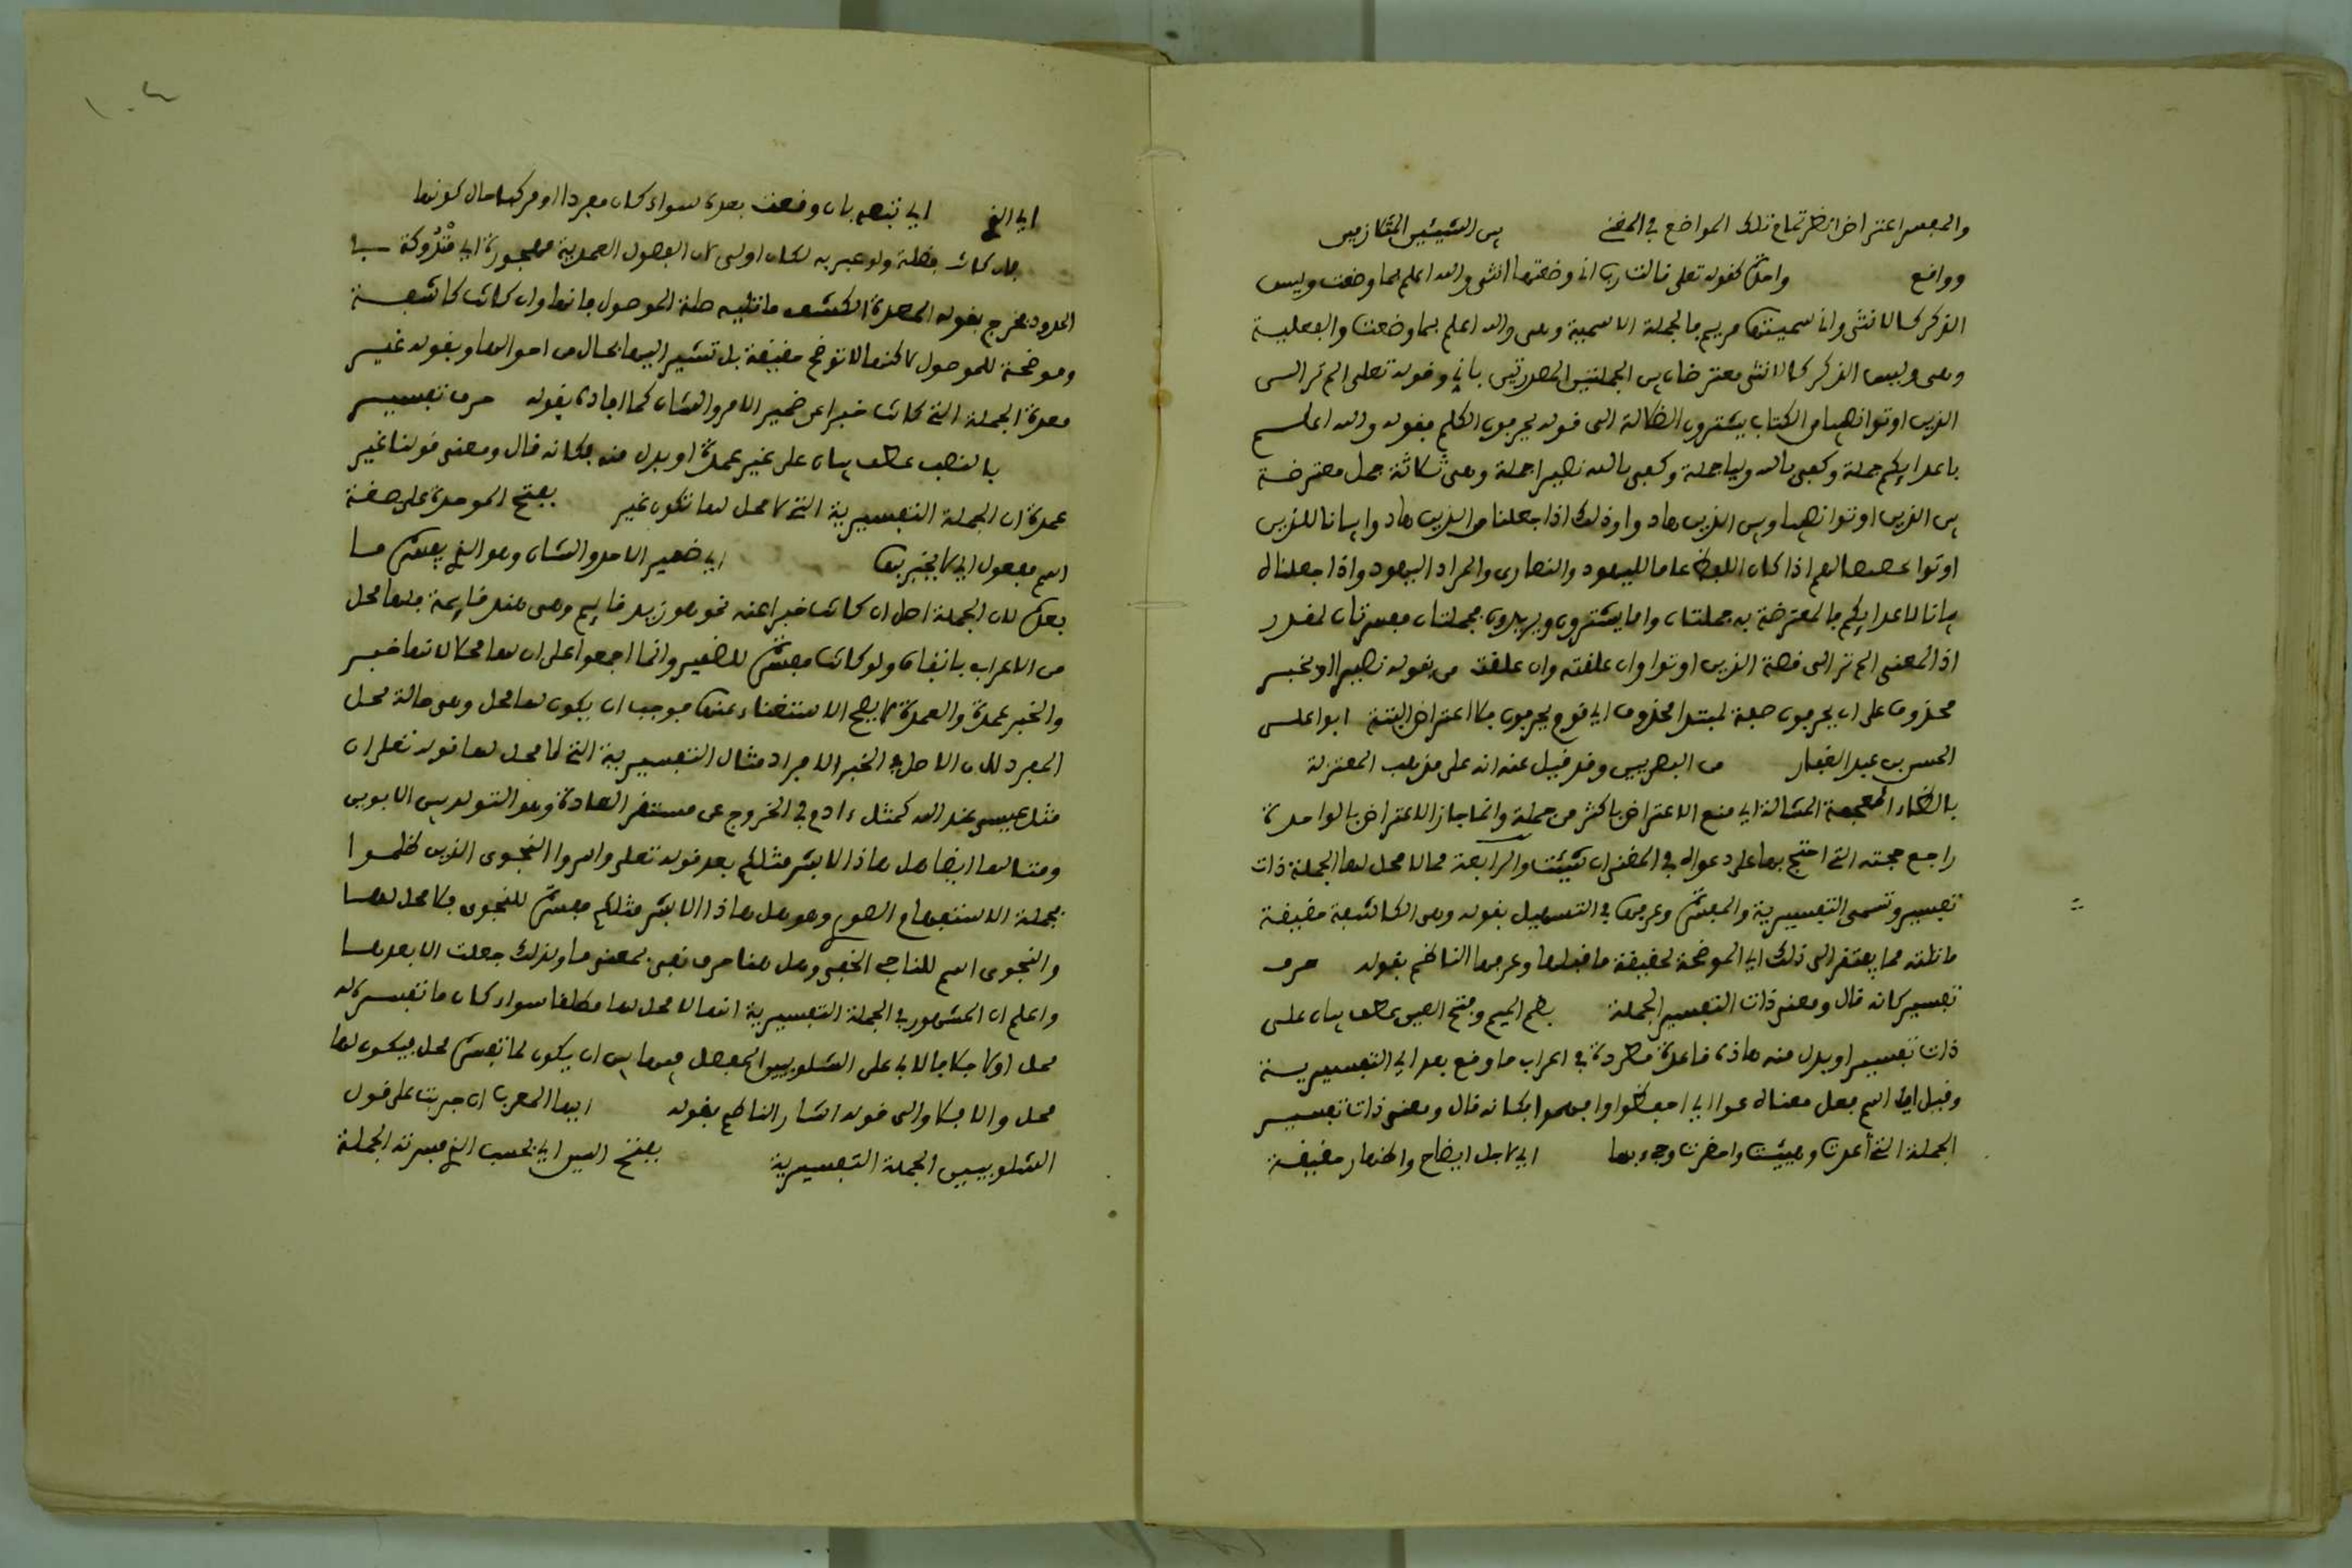 والمفسر اعتراض انظر تمام تلك المواضع في المغني بين الشيئين المتلازمين
وواقع واصله كقوله تعلى قالت رب اني وضعتها انثى والله اعلم بما وضعت وليس
الذكر كالانثى واني سميتها مريم فالجملة الاسمية وهى والله اعلم بما وضعت والفعلية
وهى وليس الذكر كالانثى معترضان بين الجملتين المصدرتين باني وقوله تعلى الم تر الى
الذين اوتوا نصيبا من الكتاب يشترون الضلالة الى قوله يحرفون الكلم فقوله والله اعلم
باعدائكم جملة وكفى بالله وليا جملة وكفى بالله نصيرا جملة وهى ثلاثة جمل معترضة
بين الذين اوتوا نصيبا وبين الذين هادوا وذلك اذا جعلنا من الذين هادوا بيانا للذين
اوتوا لهم اذا كان اللفظ عاما لليهود والنصارى والمراد اليهود واذا جعلناه
بيانا لاعدائكم فالمعترضة به جملتان واما يشترون ويريدون فجملتان مفسرتان لمقدر
اذ المعنى الم تر الى قصة الذين اوتوا وان علقته وان علقت من بقوله نصيرا او بخبر
محذوف على ان يحرفون صفة لمبتدا محذوف اي قوم يحرفون فلا اعتراض البتة ابو على
الحسن بن عبد الغفار من البصريين وقد قيل عنه انه على مذهب المعتزلة
بالظاء المعجمة المشالة اي منع الاعتراض باكثر من جملة وانما جاز الاعتراض بالواحدة
راجع حجته التي احتج بها على دعواه في المغنى ان شئت والرابعة مما لا محل لها الجملة ذات
تفسير وتسمى التفسيرية والمفسرة وعرفها في التسهيل بقوله وهى الكاشفة حقيقة
ما تلته مما يفتقر الى ذلك اي الموضحة لحقيقة ما قبلها وعرفها الناظم بقوله حرف
تفسير كانه قال ومعنى ذات التفسير الجملة بضم الميم وفتح العين عطف بيان على
ذات تفسير او بدل منه هاذه قاعدة مطردة في اعراب ما وقع بعد اي التفسيرية
وقيل ايضا اسم فعل معناه عوا اي احفظوا وافهموا فكانه قال ومعنى ذات تفسير
الجملة التي أعدت وهيئت واحضرت وجيء بها اي لاجل ايضاح واظهار حقيقة
١٠٤
اي الذي اي تتهم بان وقعت بعده سواء كان مفردا او مركبا حال كونها
بان كانت فضلة ولو عبر به لكان اولى لان الفصول العدمية مهجورة اي مَتْرُوكة في
الحدود فخرج بقوله المعدة لكشف ما تليه صلة الموصول فانها وان كانت كاشفة
وموضحة للموصول لاكنها لا توضح حقيقة بل تشير اليها بحال من احوالها وبقوله غير
معدة الجملة التي كانت خبرا عن ضمير الامر والشان كما افاده بقوله حرف تفسير
بالنصب عطف بيان على غير عمدة او بدل منه فكانه قال ومعنى قولنا غير
عمدة ان الجملة التفسيرية التي لا محل لها تكون غير بفتح الموحدة على صفة
اسم مفعول اي لا يخبر بها اي ضمير الامر والشان وهو الذي يفسره ما
بعده لان الجملة اصل ان كانت خبرا عنه نحو هو زيد قايم وهى هند قايمة فلها محل
من الاعراب باتفاق ولو كانت مفسرة للضمير وانما اجمعوا على ان لها محلا لانها خبر
والخبر عمدة والعمدة لا يصح الاستغناء عنها فوجب ان يكون لها محل وهى حالة محل
المفرد لان الاصل في الخبر الافراد مثال التفسيرية التي لا محل لها قوله تعلى ان
مثل عيسى عند الله كمثل ءادم في الخروج عن مستقر العادة وهو التولد بين الابوين
ومثالها ايضا هل هاذا الا بشر مثلكم بعد قوله تعلى واسروا النجوى الذين ظلموا
فجملة الاستفهام الصوري وهو هل هاذا الا بشر مثلكم مفسرة للنجوى فلا محل لها
والنجوى اسم للتناجي الخفي وهل هنا حرف نفي بمعنى ما ولذلك جعلت الا بعدها
واعلم ان المشهور في الجملة التفسيرية انها لا محل لها مطلقا سواء كان ما تفسره له
محل او لا خلافا لابي على الشلوبيين المفصل فيها بين ان يكون لما تفسره محل فيكون لها
محل والا فلا والى قوله اشار الناظم بقوله ايها المعرب ان جريت على قول
الشلوبيين الجملة التفسيرية بفتح السين اي بحسب الذي فسرته الجملة